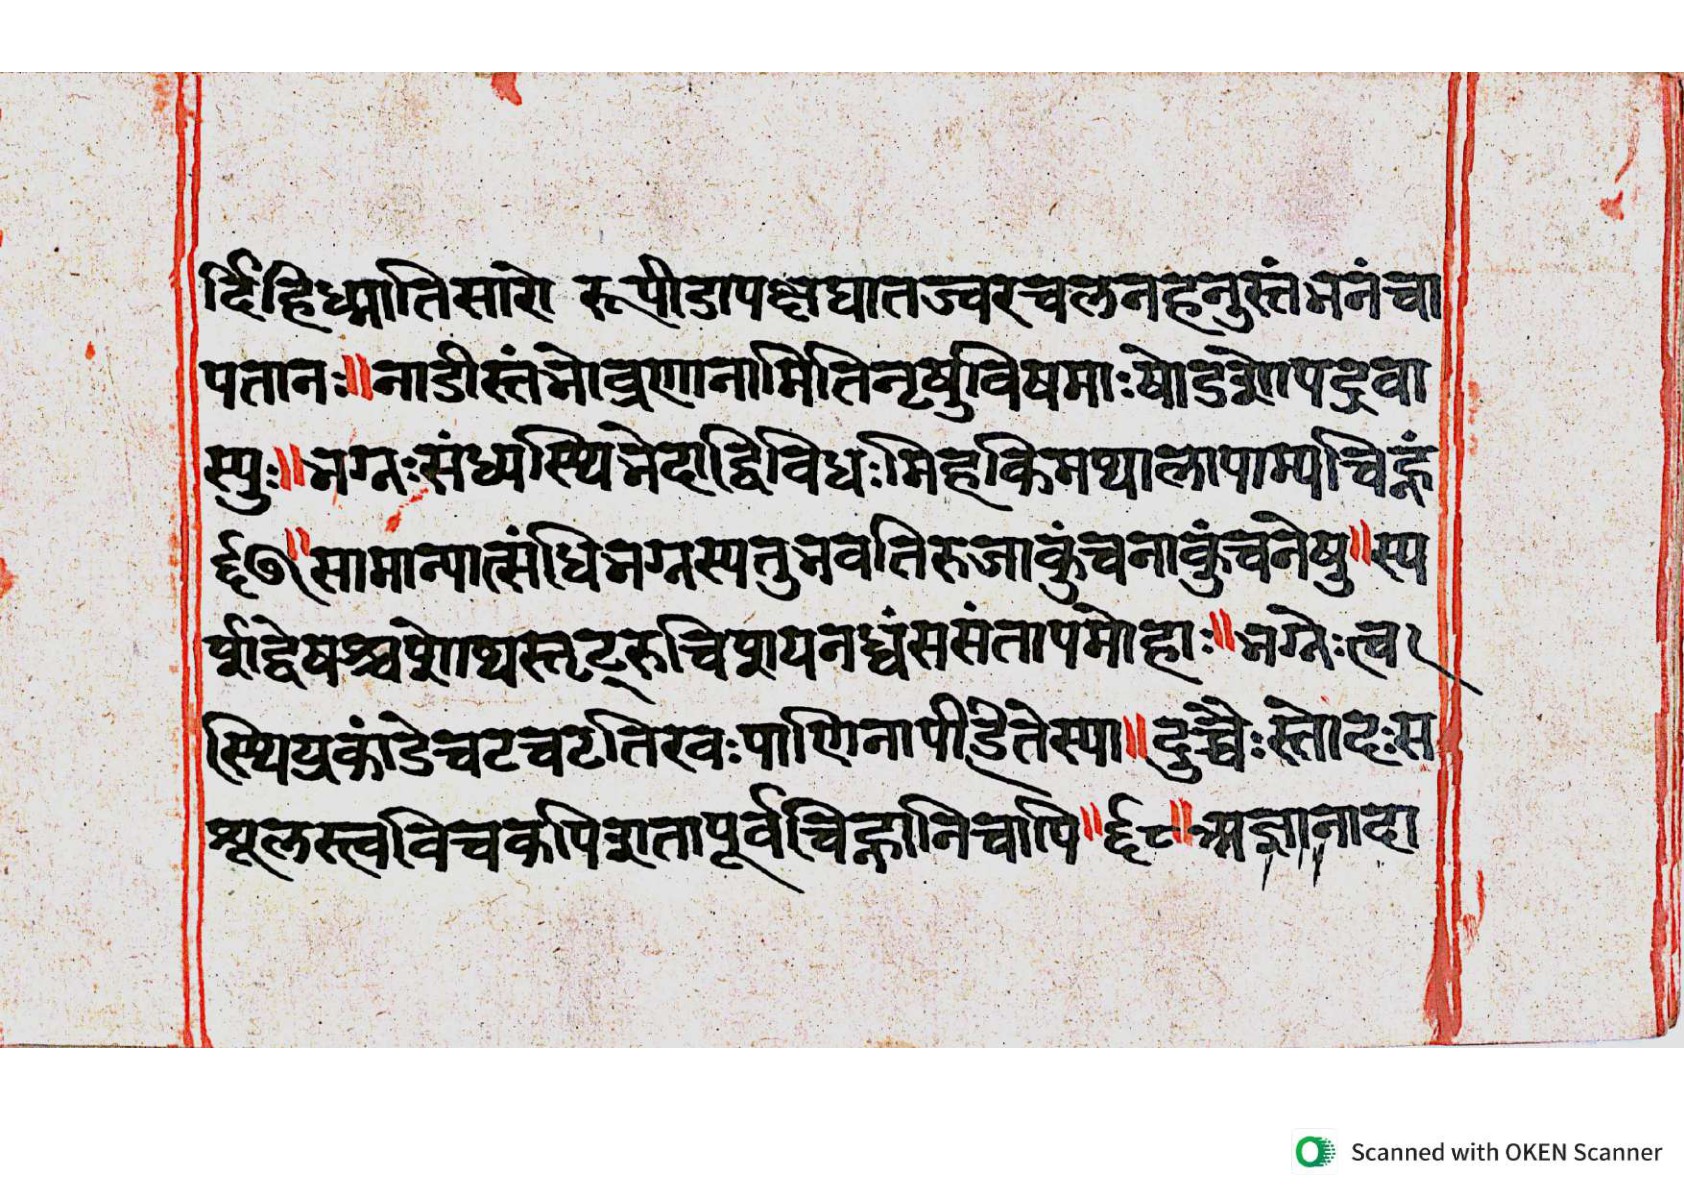 र्दिहिध्मातिसारो रूपीडापक्षघातज्वरचलनहनुस्तंभनंचा
पतानः॥नाडीस्तंभोव्रणानामितिनृषुविषमाःषोडशोपद्रवा
स्युः॥भग्नःसंध्यस्थिभेदाद्विविधःमिहकिमथालापाम्यचिह्नं
६७॥सामान्यात्संधिभग्नस्यतुभवतिरुजाकुंचनाकुंचनेषु॥स्प
र्शाद्वेषश्चशोथस्तृट्रुचिशयनध्वंससंतापमोहाः॥भग्नेःत्व
स्थिप्रकांडेचटचटतिरवःपाणिनापीडितेस्या॥दुच्चैःस्तोदःस
शूलस्त्वविचकपिशतापूर्वचिह्नानिचापि॥६८॥अज्ञानादा
Scanned with OKEN Scanner